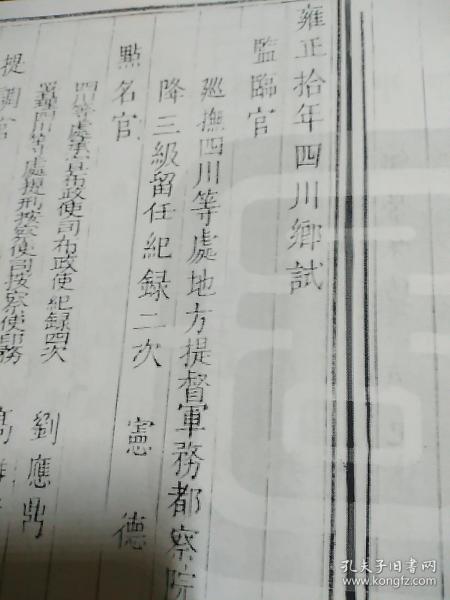 雍正拾年四川鄉試
監臨官
廵撫四川等處地方提督軍務都察院
降三級留任紀録二次 憲德
點名官
四川等處承宣布政使司布政使紀録四次 劉應鼎
四川等處提刑按察使司按察使印務 高
提調官
孔夫子旧书网
www.kongfz.com